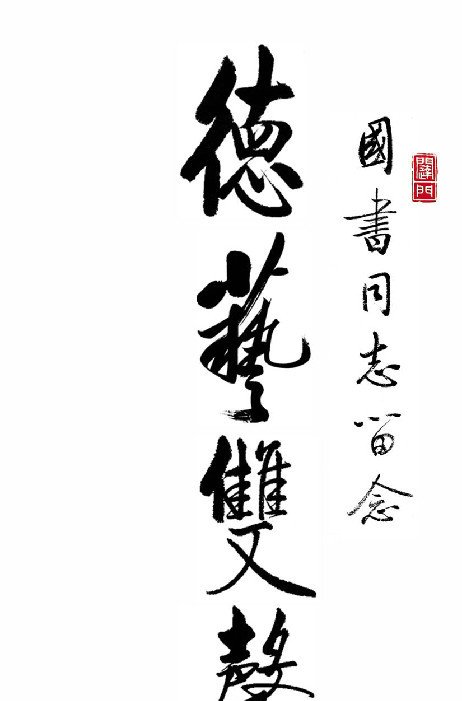 國書同志留念
德藝雙馨